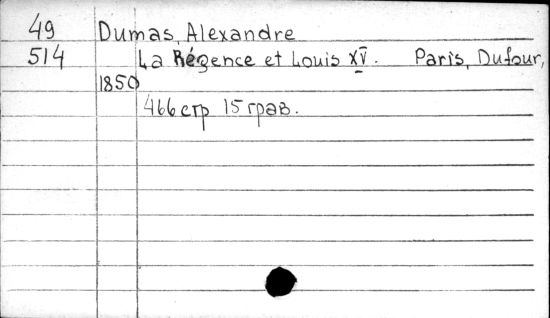 49 Dumas, Alexandre
514 La Régence et Louis XV. Paris, Dufour,
1850
466 стр 15 грав.